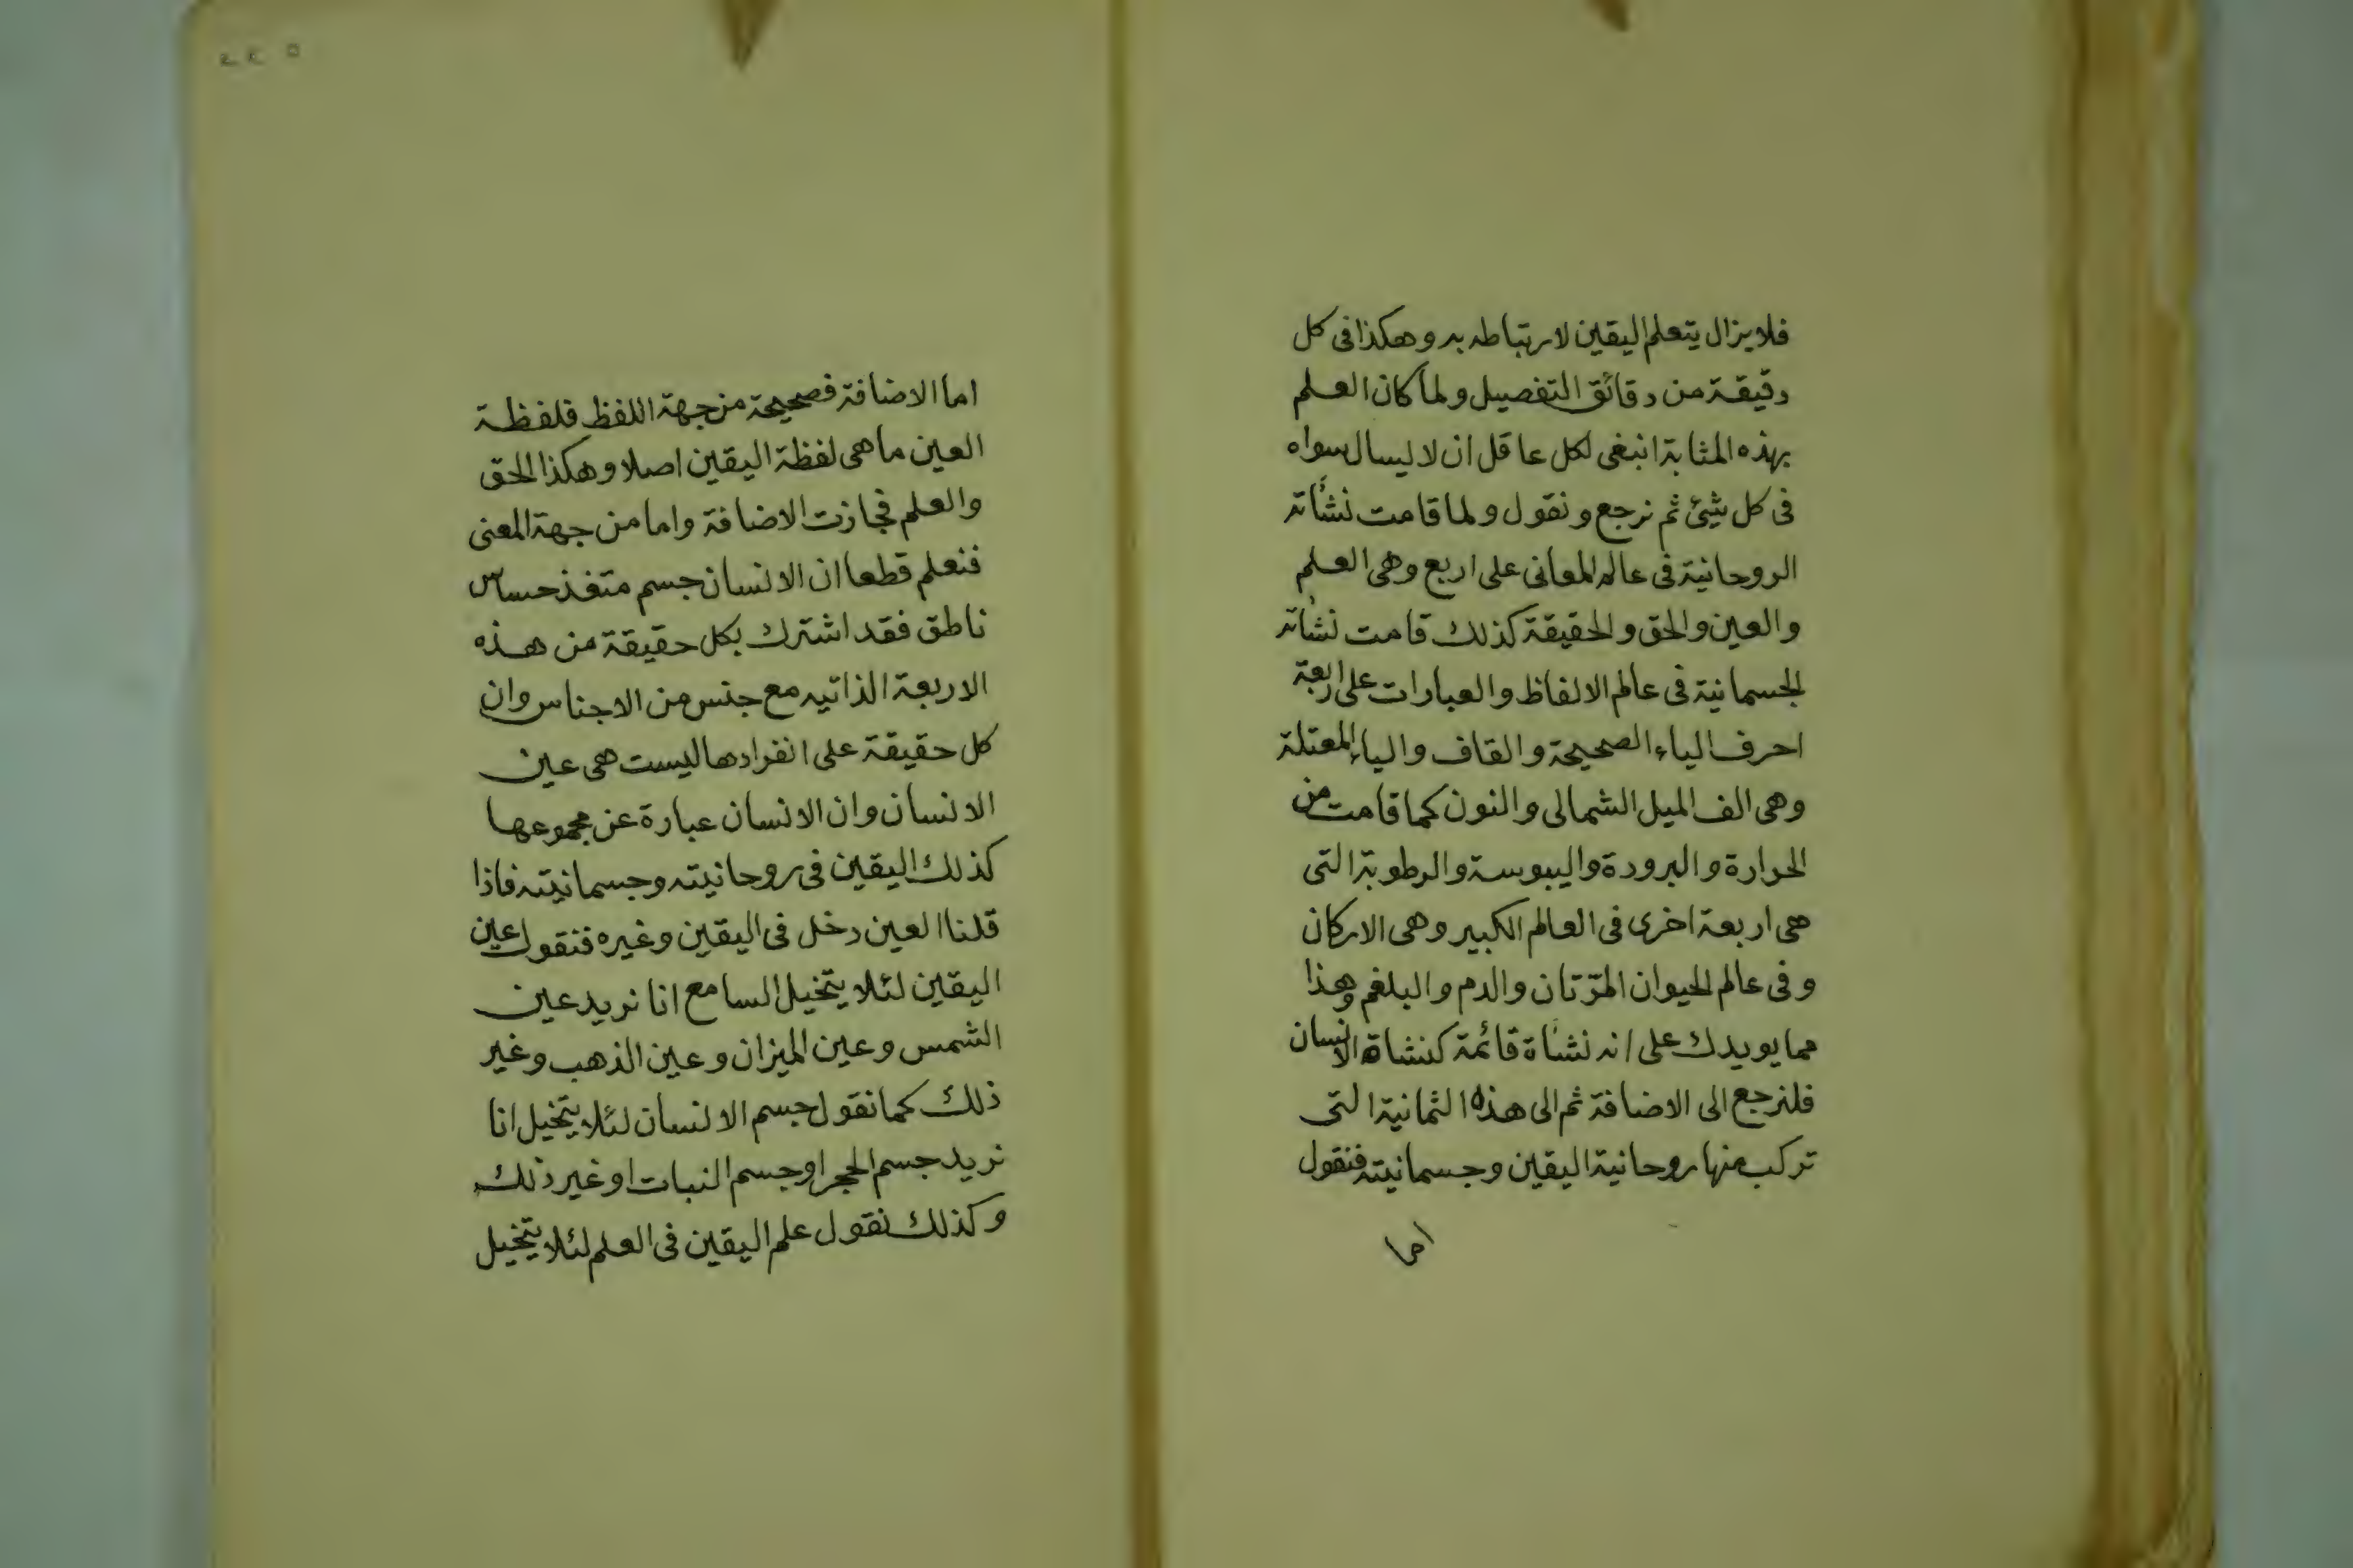 فلا يزال يتعلم اليقين لارتباطه به وهكذا فى كل
دقيقة من دقائق التفصيل ولما كان العلم
بهذه المثابة انبغى لكل عاقل ان لا ليسال سواه
فى كل شيئ ثم نرجع ونقول ولما قامت نشأته
الروحانية فى عالم المعانى على اربع وهى العلم
والعين والحق والحقيقة كذلك قامت نشأته
الجسمانية فى عالم الالفاظ والعبارات على اربعة
احرف الياء الصحيحة والقاف والياء المعتلة
وهى الف الميل الشمالى والنون كما قامت من
الحرارة والبرودة واليبوسة والرطوبة التى
هى اربعة اخرى فى العالم الكبير وهى الاركان
وفى عالم الحيوان المرّتان والدم والبلغم وهذا
مما يويدك على انه نشأة قائمة كنشاة الانسان
فلنرجع الى الاضافة ثم الى هذه الثمانية التى
تركب منها روحانية اليقين وجسمانيته فنقول
اما
٢٤٥
اما الاضافة فصحيحة من جهة اللفظ فلفظة
العين ما هى لفظة اليقين اصلا وهكذا الحق
والعلم فجازت الاضافة واما من جهة المعنى
فنعلم قطعا ان الانسان جسم متغذ حساس
ناطق فقد اشترك بكل حقيقة من هذه
الاربعة الذاتيه مع جنس من الاجناس وان
كل حقيقة على انفرادها ليست هى عين
الانسان وان الانسان عبارة عن مجموعها
كذلك اليقين فى روحانيته وجسمانيته فاذا
قلنا العين دخل فى اليقين وغيره فنقول عين
اليقين لئلا يتخيل السامع انا نريد عين
الشمس وعين الميزان وعين الذهب وغير
ذلك كما نقول جسم الانسان لئلا يتخيل انا
نريد جسم الحجر او جسم النبات او غير ذلك
وكذلك نقول علم اليقين فى العلم لئلا يتخيل